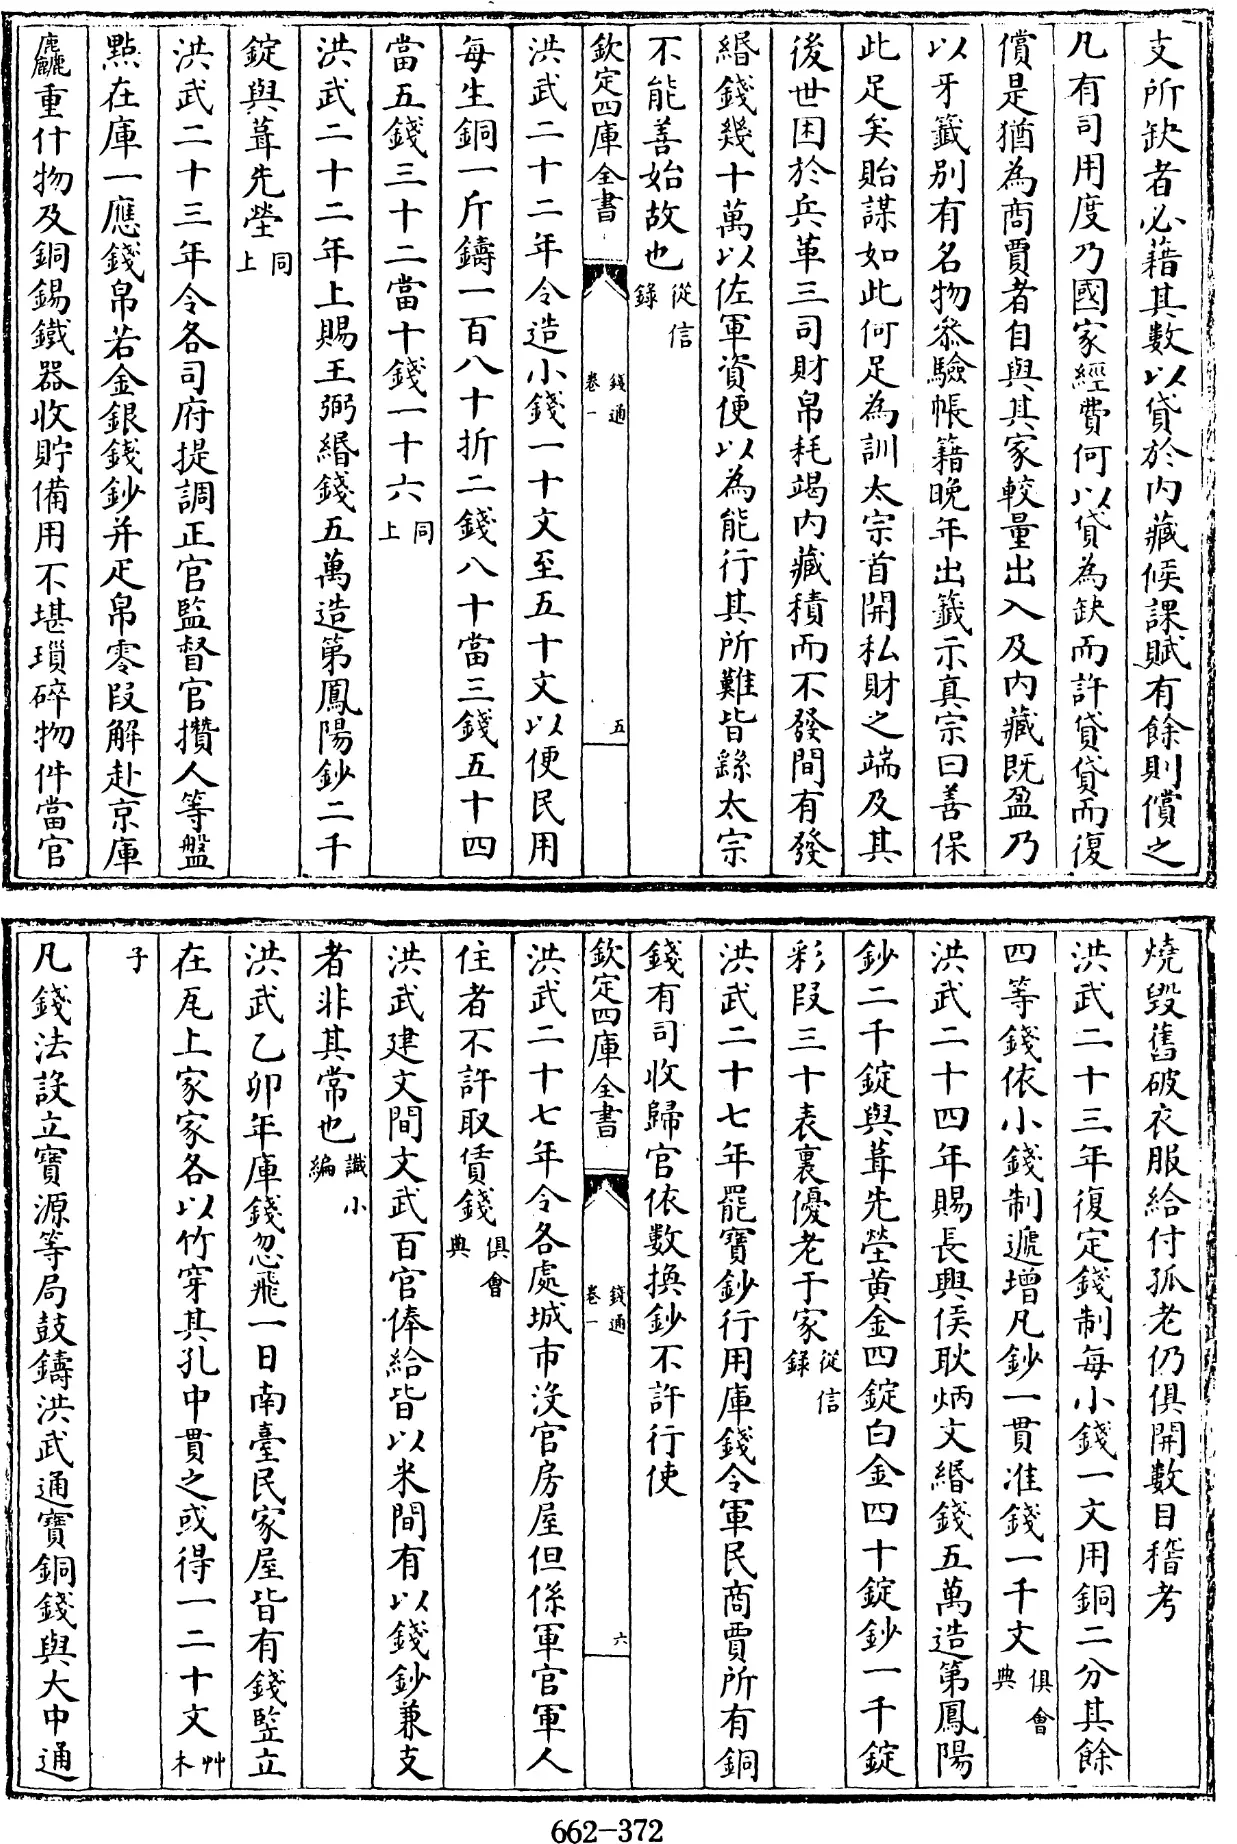 支所缺者必藉其數以貸於内藏候課賦有餘則償之
凡有司用度乃國家經費何以貸為缺而許貸貸而復
償是猶為商賈者自與其家較量出入及内藏既盈乃
以牙籤别有名物叅驗帳籍晚年出籤示真宗曰善保
此足矣貽謀如此何足為訓太宗首開私財之端及其
後世困於兵革三司財帛耗竭内藏積而不發間有發
緡錢幾十萬以佐軍資便以為能行其所難皆繇太宗
不能善始故也從信錄
欽定四庫全書 錢通 卷一 五
洪武二十二年令造小錢一十文至五十文以便民用
每生銅一斤鑄一百八十折二錢八十當三錢五十四
當五錢三十二當十錢一十六同上
洪武二十二年上賜王弼緡錢五萬造第鳳陽鈔二千
錠與葺先塋同上
洪武二十三年令各司府提調正官監督官攢人等盤
點在庫一應錢帛若金銀錢鈔并疋帛零段解赴京庫
麤重什物及銅錫鐵器收貯備用不堪瑣碎物件當官
燒毁舊破衣服給付孤老仍俱開數目稽考
洪武二十三年復定錢制每小錢一文用銅二分其餘
四等錢依小錢制遞增凡鈔一貫准錢一千文俱會典
洪武二十四年賜長興侯耿炳文緡錢五萬造第鳳陽
鈔二千錠與葺先塋黄金四錠白金四十錠鈔一千錠
彩段三十表裏優老于家從信錄
洪武二十七年罷寶鈔行用庫錢令軍民商賈所有銅
錢有司收歸官依數換鈔不許行使
欽定四庫全書 錢通 卷一 六
洪武二十七年令各處城市沒官房屋但係軍官軍人
住者不許取賃錢俱會典
洪武建文間文武百官俸給皆以米間有以錢鈔兼支
者非其常也識小編
洪武乙卯年庫錢忽飛一日南臺民家屋皆有錢竪立
在瓦上家家各以竹穿其孔中貫之或得一二十文艸木
子
凡錢法設立寶源等局鼓鑄洪武通寶銅錢與大中通
662-372